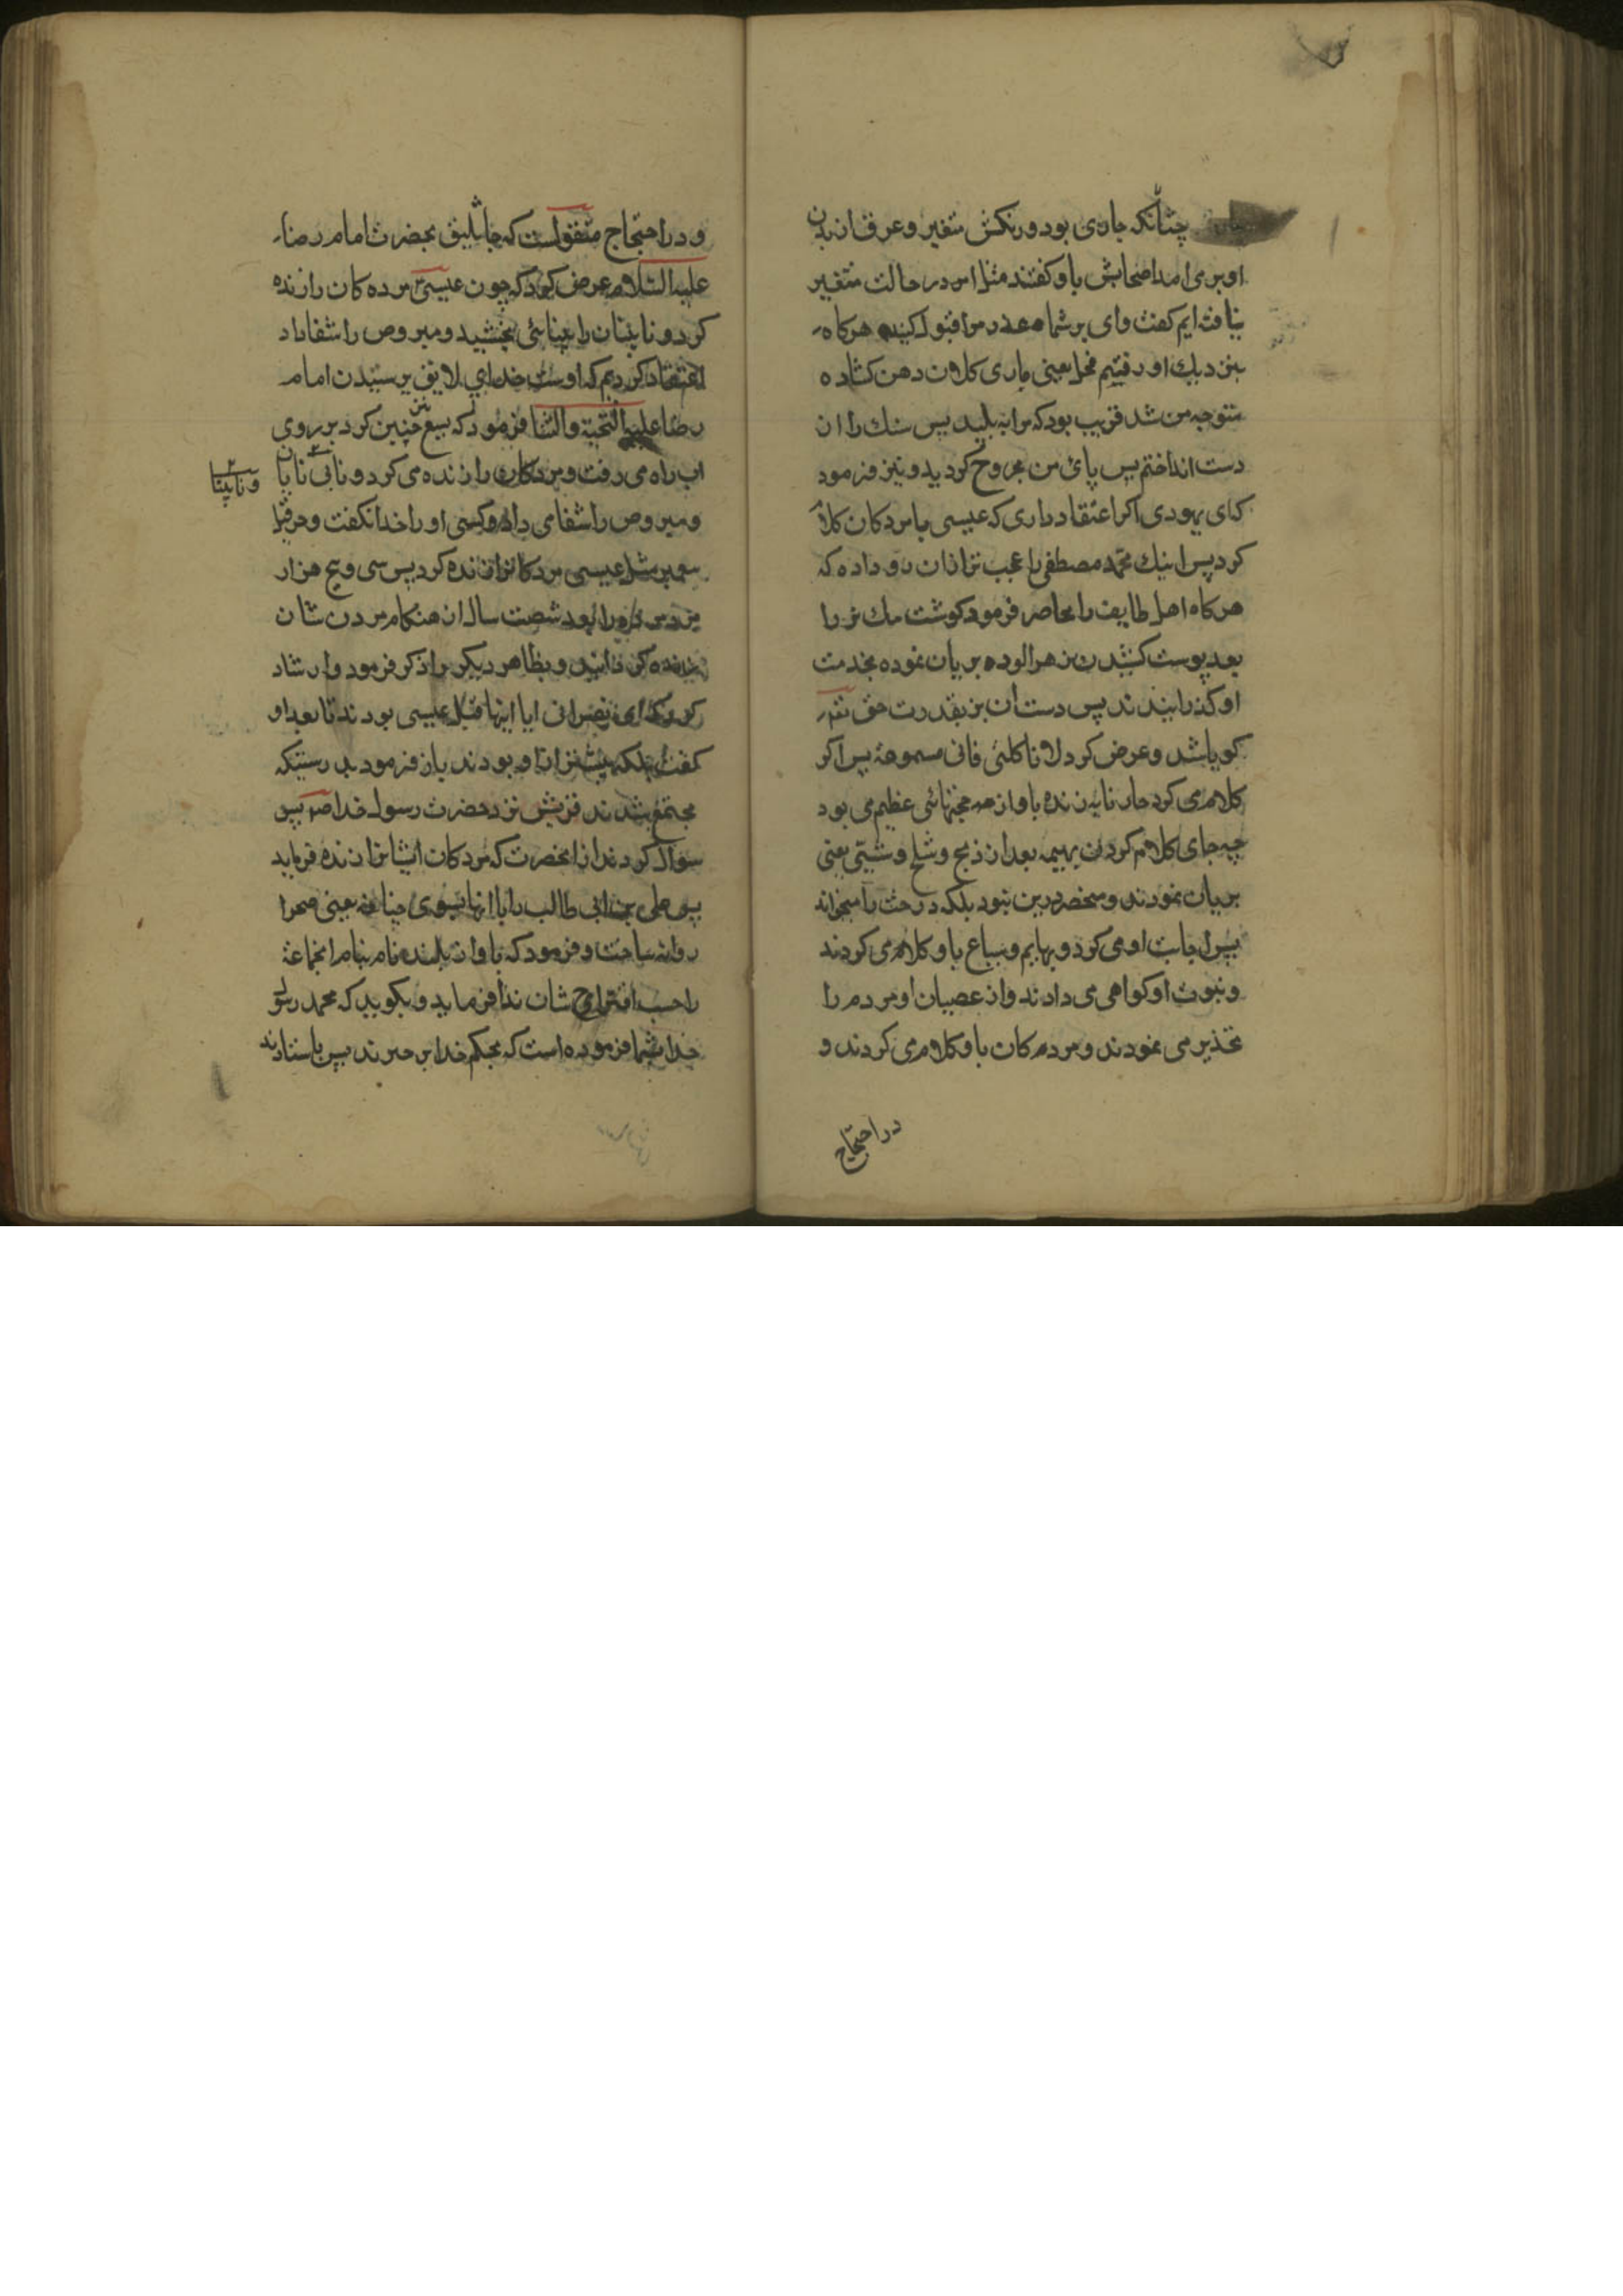 چنانکه جاری بود و رنکش متغیر و عرق از بدن
او بر می امد اصحابش باو کفتند مثل امر در حالت متغیر
نیافته ایم کفت وای بر شما عذر مرا قبول کنید هرکاه
بنزدیك او رفتیم فحل یعنی ماری کلان دهن کشاده
متوجه من شد قریب بود که مرا به بلعد پس سنك را از
دست انداختم پس پائ من مجروح کردید و نیز فرمود
کای یهودی اکر اعتقاد داری که عیسی با مردکان کلام
کرد پس اینك محمد مصطفی را عجب تر ازان رو داده که
هرکاه اهل طایف را محاصره فرمود کوشت یك بز را
بعد پوست کشیدن زهرالوده بریان نموده بخدمت
او کذرانیدند پس دست ان بز بقدرت حق تعه
کویا شد و عرض کرد لا تاکلنی فانی مسمومة پس اکر
کلام می کرد جاریایه زنده باو از معجزهائی عظیم می بود
چه جای کلام کردن بهیمه بعد از ذبح و سلخ و شیی یعنی
بریان نمودن و منحصر درین نبود بلکه درخت را میخواند
پس اجابت او می کرد و بهایم و سباع باو کلام می کردند
و نبوت او کواهی می دادند و از عصیان او مردم را
تحذیر می نمودند و مردم کان باو کلام می کردند و
در احتجاج
و در احتجاج منقولست که جاثلیق بحضرت امام رضا
علیه السلام عرض کرد که چون عیسی مرده کان را زنده
کرد و نابینان را بینائی بخشید و مبروص را شفا داد
اعتقاد کردیم که اوست خدای لایق پرستیدن امام
رضا علیه التحیة والثنا فرمود که یسع نیز چنین کرد بر روی
اب راه می رفت و مردکان را زنده می کرد و نابینایان
و نابینا
و مبروص را شفا می داد و کسی او را خدا نکفت و حزقیل
پیغمبر مثل عیسی مردکانرا زنده کرد پس سی و پنج هزار
مردم را بعد شصت سال از هنکام مردن شان
زنده کردانید و نظایر دیکر را ذکر فرمود و ارشاد
کرد که ای نصرانی ایا اینها قبل عیسی بودند تا بعد او
کفت بلکه پیشتر از او بودند باز فرمود بدرستیکه
مجتمع شدند قریش نزد حضرت رسول خدا صم پس
سوال کردند از انحضرت که مردکان ایشانرا زنده فرماید
پس علی بن ابی طالب را با انها بسوی جبانه یعنی صحرا
روانه ساخت و فرمود که باواز بلند نام بنام انجماعة
را حسب اقتراح شان ندا فرماید و بکوید که محمد رسول
خدا بشما فرموده است که بحکم خدا بر خیزند پس باستادند